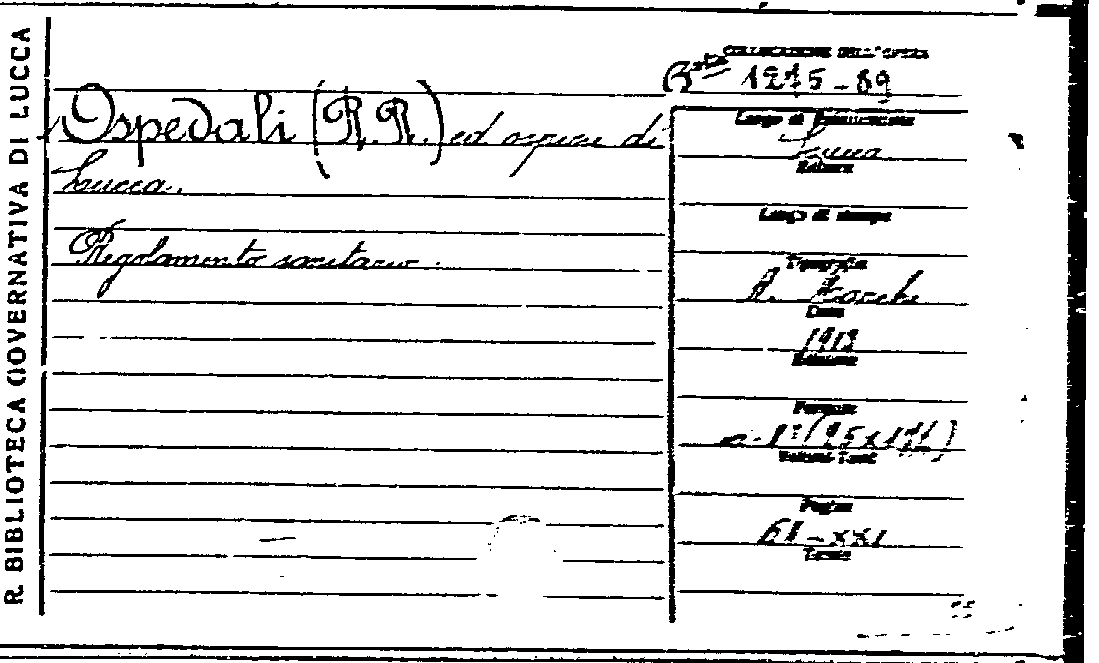 R. BIBLIOTECA GOVERNATIVA DI LUCCA
COLLOCAZIONE DELL'OPERA
Bsta 1245-89
Ospedali (R.R.) ed ospizi di
Lucca.
Regolamento sanitario.
Luogo di Pubblicazione
Lucca
Editore
Luogo di stampa
Tipografia
A. Marchi
Data
1913
Edizione
Formato
Volumi-Tomi
Pagine
61-XXI
Tavole